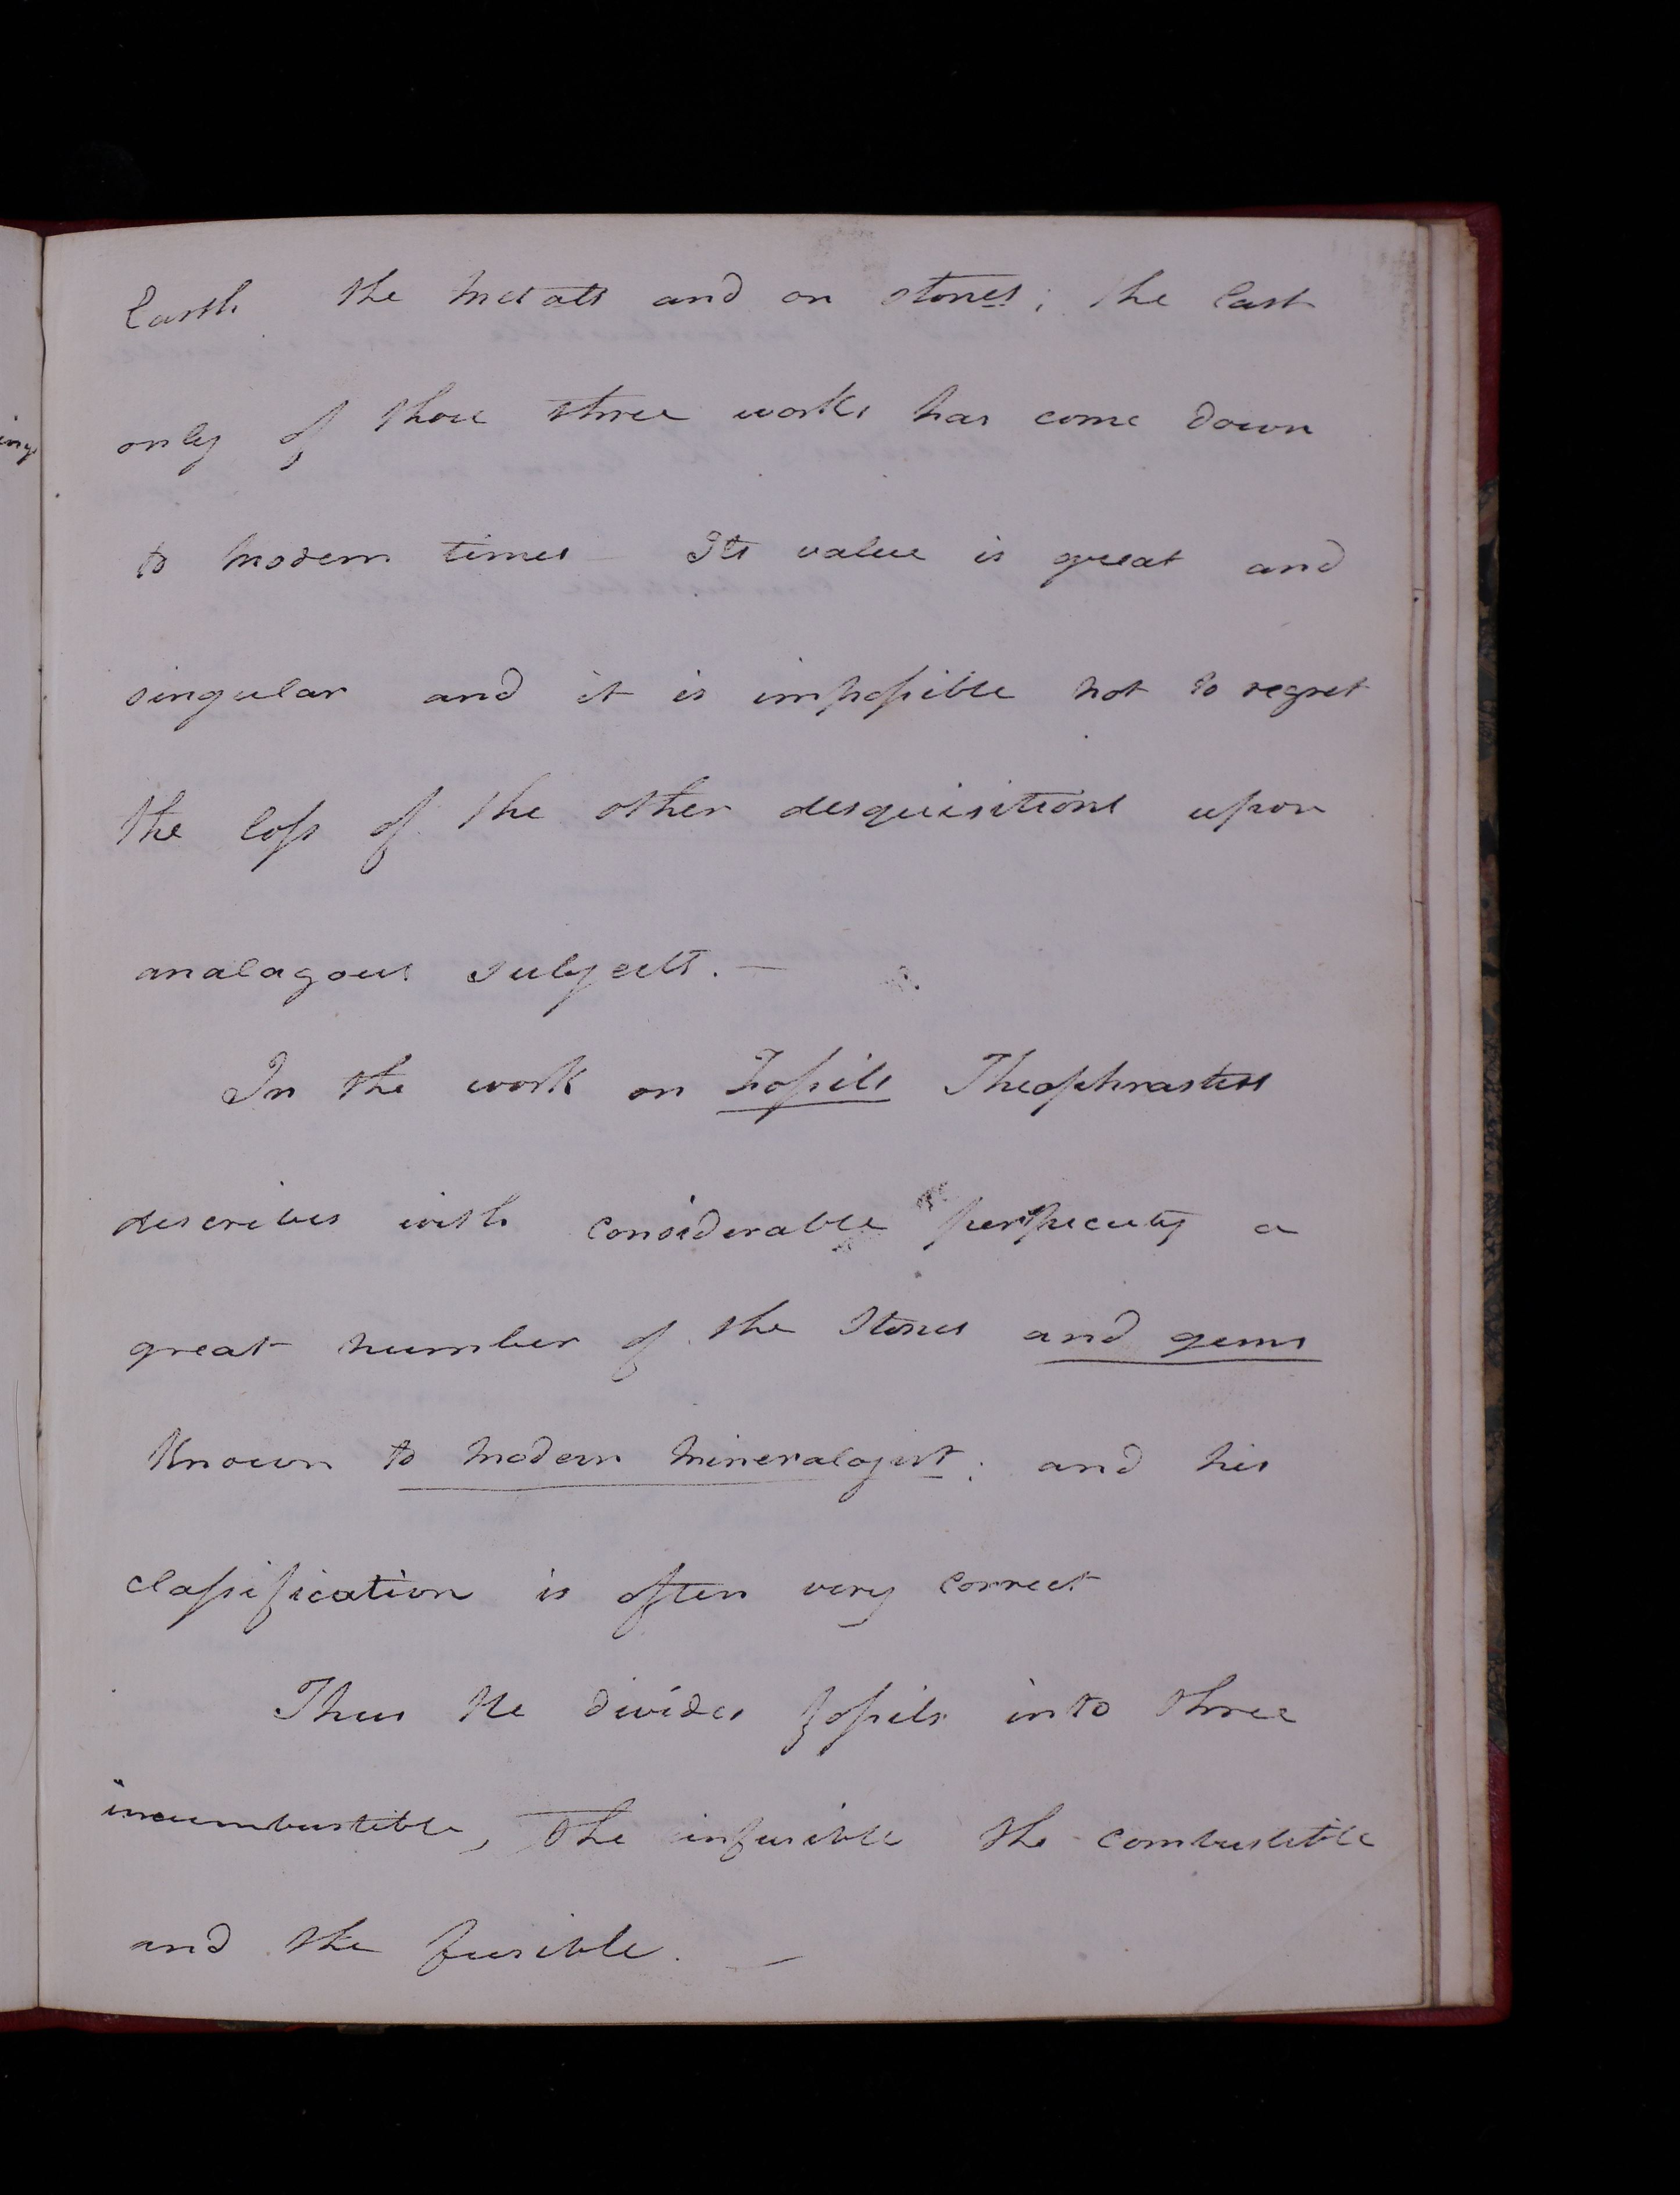 Earth the metals and on stones; the last
only of those three works has come down
to modern times – Its value is great and
singular and it is impossible not to regret
the loss of the other desquisitions upon
analagous subjects. —
In the work on Fossils Theophrastus
describes with considerable perspicuity a
great number of the Stones and gems
Known to modern mineralogist; and his
classification is often very correct
Thus He divides fossils into three
incumbustible, The infusible the combustible
and the fusible. —